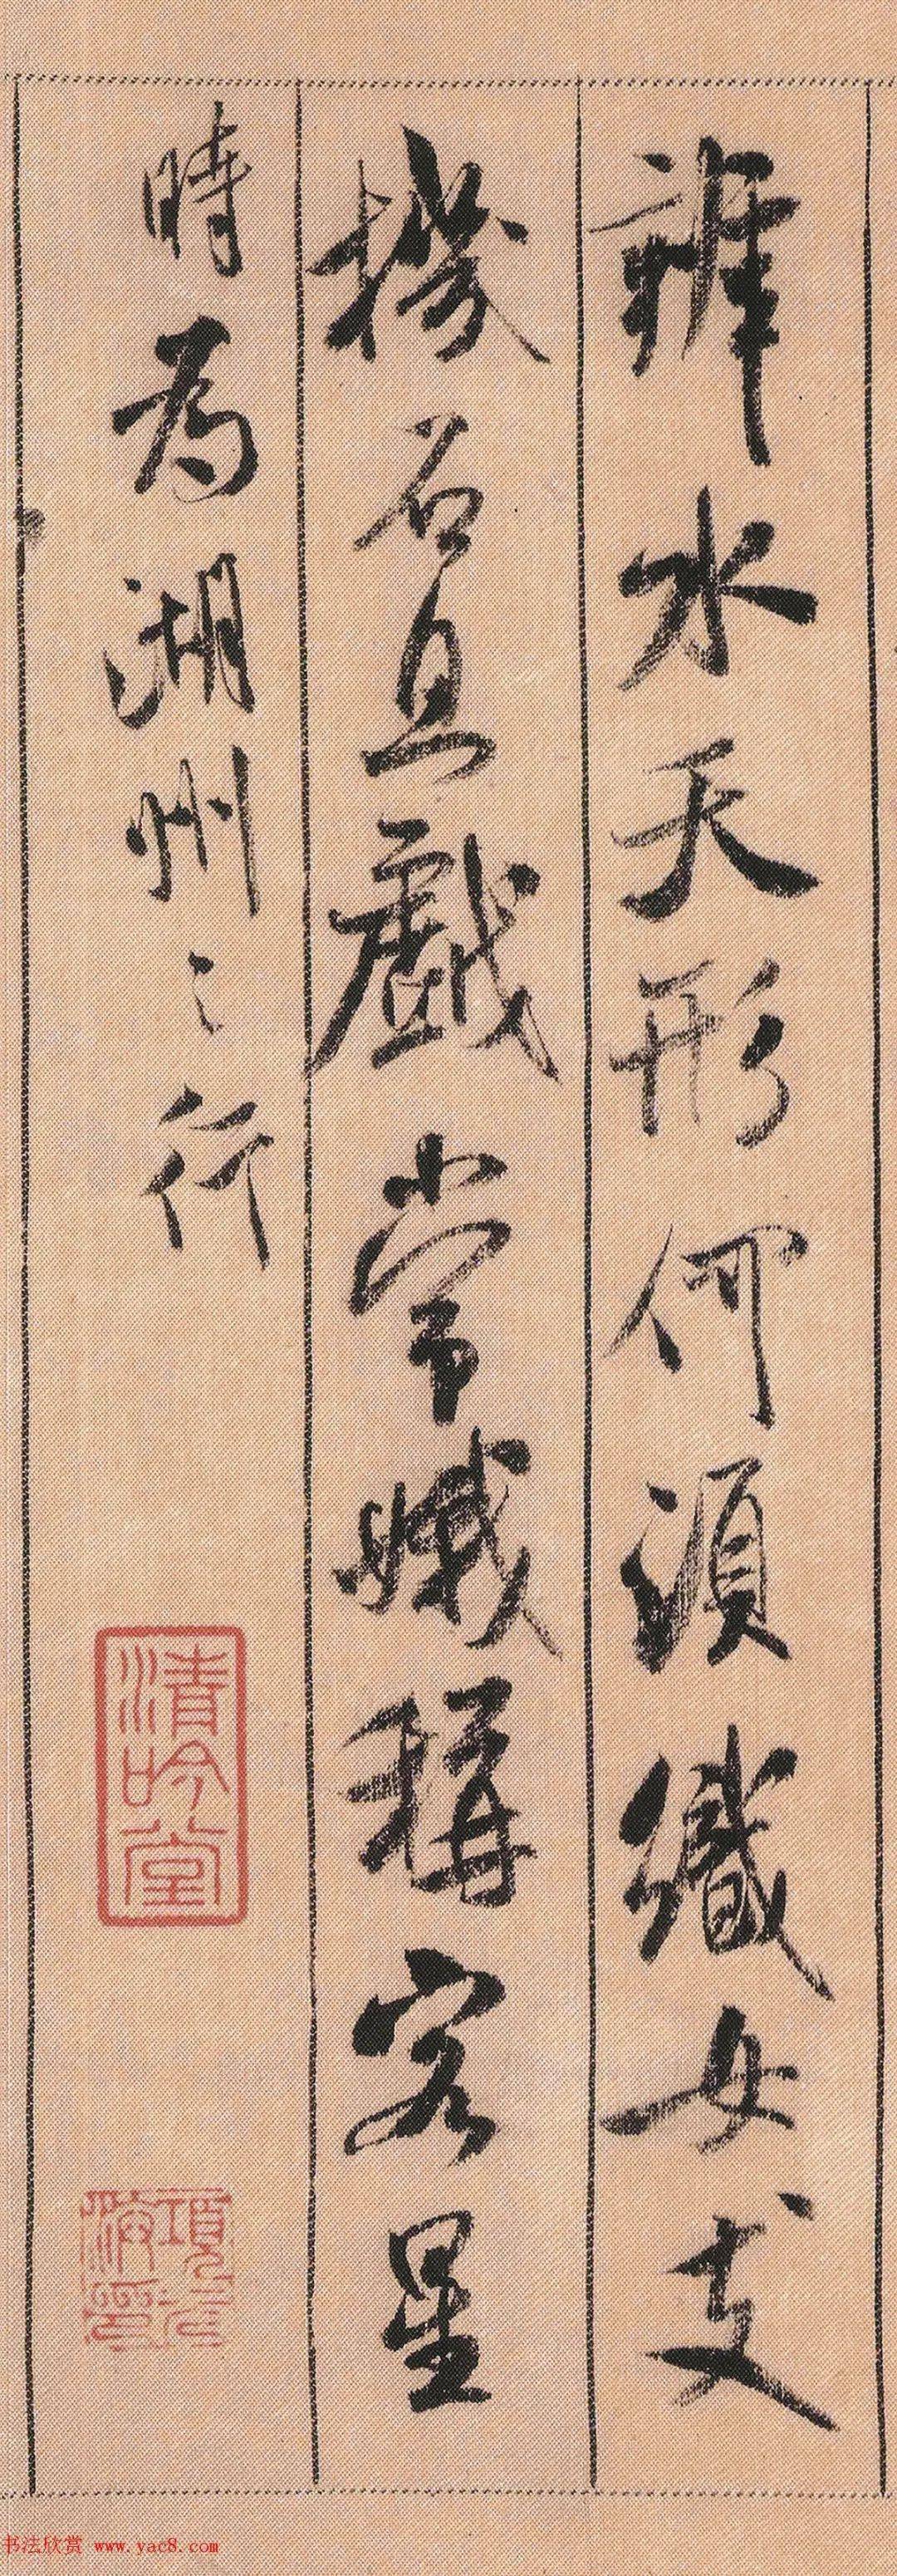 辨水天形何須織女支
機石且戲常娥稱客星
時為湖州之行
清吟堂
項元
汴印
书法欣赏 www.yac8.com